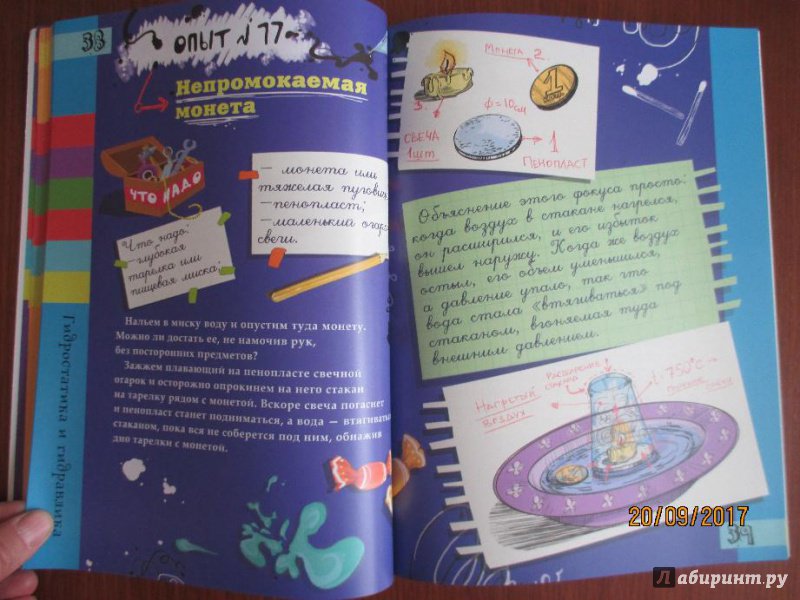 38
ОПЫТ № 17
Непромокаемая
монета
ЧТО НАДО
Что надо:
– глубокая
тарелка или
пищевая миска;
– монета или
тяжелая
– пенопласт;
– маленький
свечи.
Нальем в миску воду и опустим туда монету.
Можно ли достать ее, не намочив рук,
без посторонних предметов?
Зажжем плавающий на пенопласте свечной
огарок и осторожно опрокинем на него стакан
на тарелку рядом с монетой. Вскоре свеча погаснет
и пенопласт станет подниматься, а вода — втягиваться
стаканом, пока вся не соберется под ним, обнажив
дно тарелки с монетой.
Гидростатика и гидравлика
МОНЕТА 2.
1
3.
ϕ=10см
СВЕЧА
1шт
1
ПЕНОПЛАСТ
Объяснение этого фокуса просто:
когда воздух в стакане нагрелся,
он расширился, и его избыток
вышел наружу. Когда же воздух
остыл, его объем уменьшился,
а давление упало, так что
вода стала «втягиваться» под
стаканом, вгоняемая туда
внешним давлением.
НАГРЕТЫЙ
ВОЗДУХ
750°С
20/09/2017
39
Лабиринт.ру